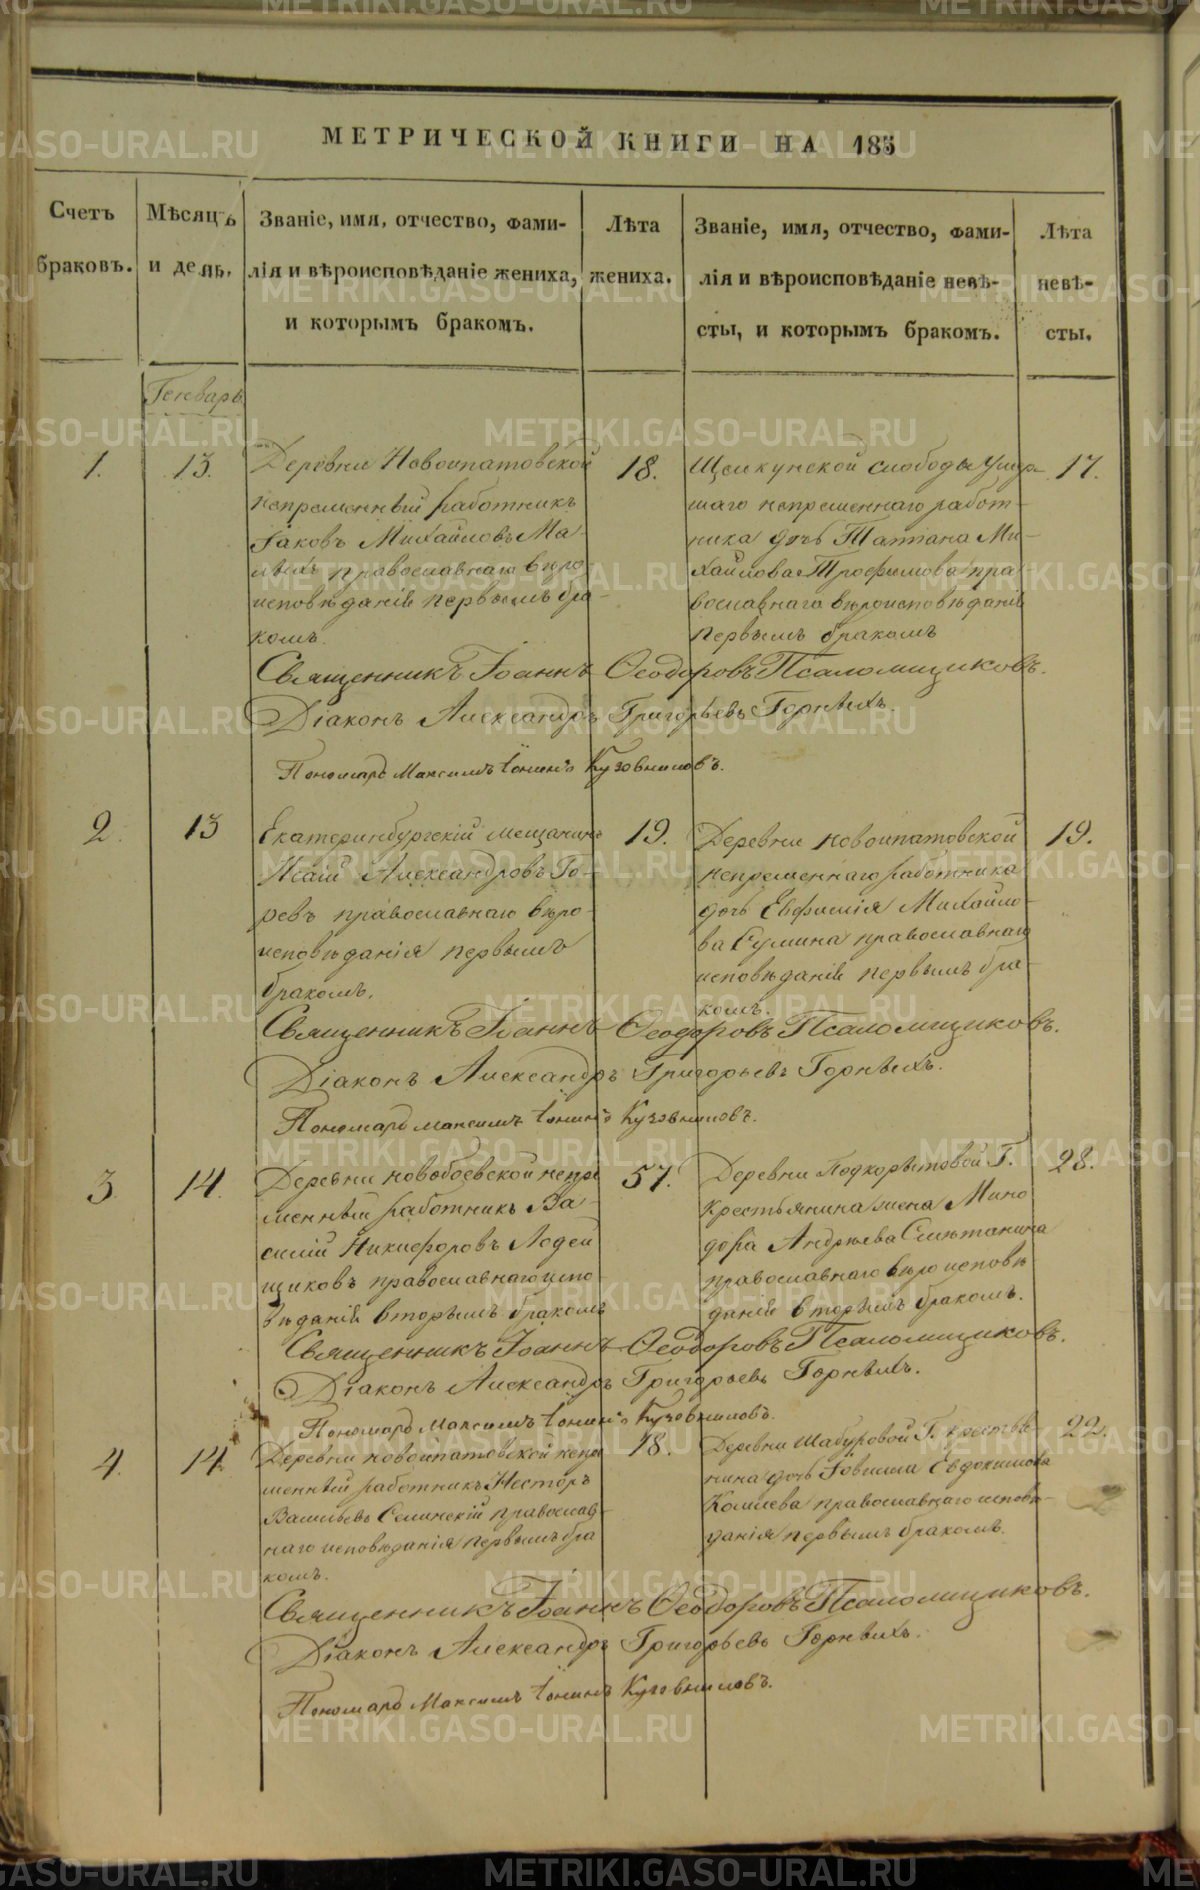 МЕТРИЧЕСКОЙ КНИГИ НА 185
Счетъ браковъ.
Мѣсяцъ и день.
Званіе, имя, отчество, фами-
лія и вѣроисповѣданіе жениха,
и которымъ бракомъ.
Лѣта
жениха.
Званіе, имя, отчество, фами-
лія и вѣроисповѣданіе невѣ-
сты, и которымъ бракомъ.
Лѣта
невѣ-
сты.
Генварь
1.
13.
Деревни Новоипатовской
непременный работникъ
Іаковъ Михайловъ Ма-
лыхъ православнаго вѣро-
исповѣданія первымъ бра-
комъ.
18.
Щелкунской слободы умер-
шаго непременнаго работ-
ника дочь Татіана Ми-
хайлова Трофимова пра-
вославнаго вѣроисповѣданія
первымъ бракомъ
17.
Священникъ Іоаннъ Ѳеодоровъ Псаломщиковъ.
Діаконъ Александръ Григорьевъ Горныхъ.
Пономарь Максимъ Іонинъ Кузовниковъ.
2.
13
Екатеринбургскій мещанинъ
Исаій Александровъ Го-
ревъ православнаго вѣро-
исповѣданія первымъ
бракомъ.
19.
Деревни Новоипатовской
непременнаго работника
дочь Евфимія Михайло-
ва Сумина православнаго
исповѣданія первымъ бра-
комъ.
19.
Священникъ Іоаннъ Ѳеодоровъ Псаломщиковъ.
Діаконъ Александръ Григорьевъ Горныхъ.
Пономарь Максимъ Іонинъ Кузовниковъ.
3
14.
Деревни Новобоевской непре
менный работникъ Ва-
силій Никифоровъ Лодей
щиковъ православнаго испо
вѣданія вторымъ бракомъ
57.
Деревни Подкорытовой Г.
крестьянина жена Мино
дора Андрѣева Сметанина
православнаго вѣроисповѣ
данія вторымъ бракомъ.
28.
Священникъ Іоаннъ Ѳеодоровъ Псаломщиковъ.
Діаконъ Александръ Григорьевъ Горныхъ.
Пономарь Максимъ Іонинъ Кузовниковъ.
4.
14
Деревни Новоипатовской непре
менный работникъ Несторъ
Васильевъ Селинскій православ-
наго исповѣданія первымъ бра
комъ.
18.
Деревни Шабуровой Г. крестья
нина дочь Евдокимова
православнаго исповѣ-
данія первымъ бракомъ.
22.
Священникъ Іоаннъ Ѳеодоровъ Псаломщиковъ.
Діаконъ Александръ Григорьевъ Горныхъ.
Пономарь Максимъ Іонинъ Кузовниковъ.
METRIKI.GASO-URAL.RU